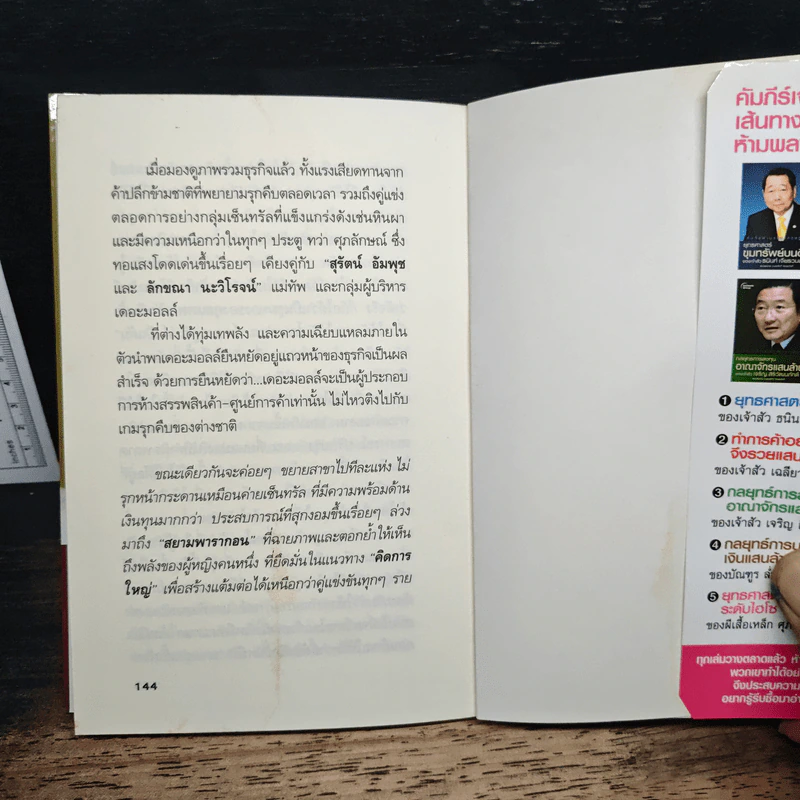 เมื่อมองดูภาพรวมธุรกิจแล้ว ทั้งแรงเสียดทานจาก
ค้าปลีกข้ามชาติที่พยายามรุกคืบตลอดเวลา รวมถึงคู่แข่ง
ตลอดการอย่างกลุ่มเซ็นทรัลที่แข็งแกร่งดังเช่นหินผา
และมีความเหนือกว่าในทุกๆ ประตู ทว่า ศุภลักษณ์ ซึ่ง
ทอแสงโดดเด่นขึ้นเรื่อยๆ เคียงคู่กับ "สุรัตน์ อัมพุช
และ ลักขณา นะวิโรจน์" แม่ทัพ และกลุ่มผู้บริหาร
เดอะมอลล์
ที่ต่างได้ทุ่มเทพลัง และความเฉียบแหลมภายใน
ตัวนำพาเดอะมอลล์ยืนหยัดอยู่แถวหน้าของธุรกิจเป็นผล
สำเร็จ ด้วยการยืนหยัดว่า...เดอะมอลล์จะเป็นผู้ประกอบ
การห้างสรรพสินค้า-ศูนย์การค้าเท่านั้น ไม่ไหวติงไปกับ
เกมรุกคืบของต่างชาติ
ขณะเดียวกันจะค่อยๆ ขยายสาขาไปทีละแห่ง ไม่
รุกหน้ากระดานเหมือนค่ายเซ็นทรัล ที่มีความพร้อมด้าน
เงินทุนมากกว่า ประสบการณ์ที่สุกงอมขึ้นเรื่อยๆ ล่วง
มาถึง "สยามพารากอน" ที่ฉายภาพและตอกย้ำให้เห็น
ถึงพลังของผู้หญิงคนหนึ่ง ที่ยึดมั่นในแนวทาง "คิดการ
ใหญ่" เพื่อสร้างแต้มต่อได้เหนือกว่าคู่แข่งขันทุกๆ ราย
144
คัมภีร์เจ
เส้นทาง
ห้ามพลา
ยุทธศาสตร์
ขุมทรัพย์บนดิ
กลยุทธ์การลงทุน
อาณาจักรแสนล้าน
❶ ยุทธศาสต
ของเจ้าสัว ธนิน
❷ ทำการค้าอย
จึงรวยแสน
ของเจ้าสัว เฉลีย
❸ กลยุทธ์การ
อาณาจักรแส
ของเจ้าสัว เจริญ
❹ กลยุทธ์การบ
เงินแสนล้า
ของบัณฑูร
❺ ยุทธศาส
ระดับไฮโซ
ของผีเสื้อเหล็ก ศุภ
ทุกเล่มวางตลาดแล้ว ห้
พวกเขาทำได้อย
จึงประสบความ
อยากรู้รีบซื้อมาอ่า